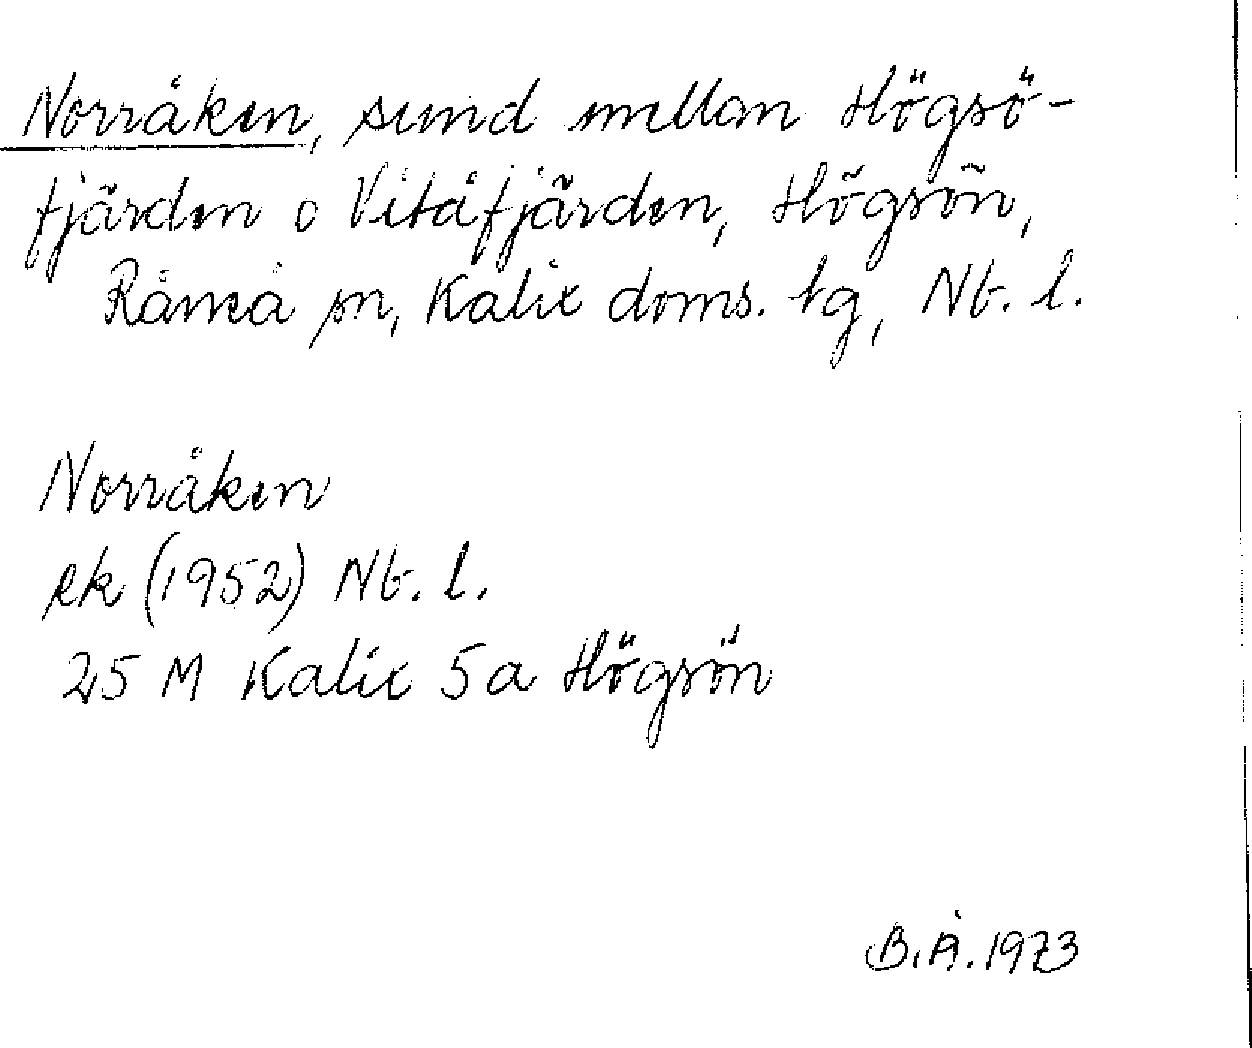 Norråken, sund mellan Högsö-
fjärden o Vitåfjärden, Högsön,
Råneå sn, Kalix doms. tg, Nb. l.
Norråken
ek (1952) Nb. l.
25 M Kalix 5a Högsön
B.Å. 1973